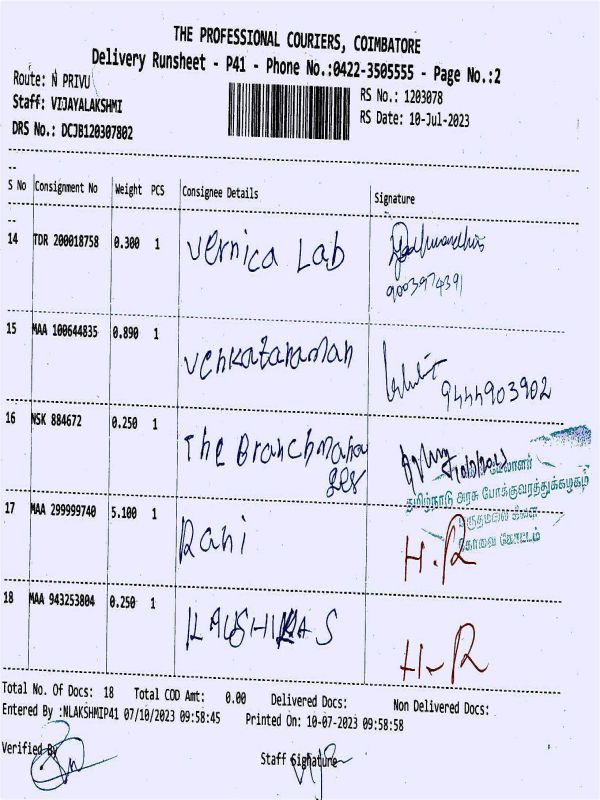 THE PROFESSIONAL COURIERS, COIMBATORE
Delivery Runsheet - P41 - Phone No.:0422-3505555 - Page No.:2
Route: N PRIVU
Staff: VIJAYALAKSHMI
DRS No.: DCJB120307802
RS No.: 1203078
RS Date: 10-Jul-2023
S No Consignment No Weight PCS Consignee Details Signature
14 TDR 200018758 0.300 1 Vernica Lab
9003974391
15 MAA 100644835 0.890 1 Venkataraman
9444903902
16 NSK 884672 0.250 1 The Branchmana
ger
மேலாளர்
தமிழ்நாடு அரசு போக்குவரத்துக்கழகம்
மருதமலை கிளை
கோவை கோட்டம்
17 MAA 299999740 5.100 1 Rani H.R
18 MAA 943253804 0.250 1 H-R
Total No. Of Docs: 18 Total COD Amt: 0.00 Delivered Docs: Non Delivered Docs:
Entered By :NLAKSHMIP41 07/10/2023 09:58:45 Printed On: 10-07-2023 09:58:58
Verified By
Staff Signature